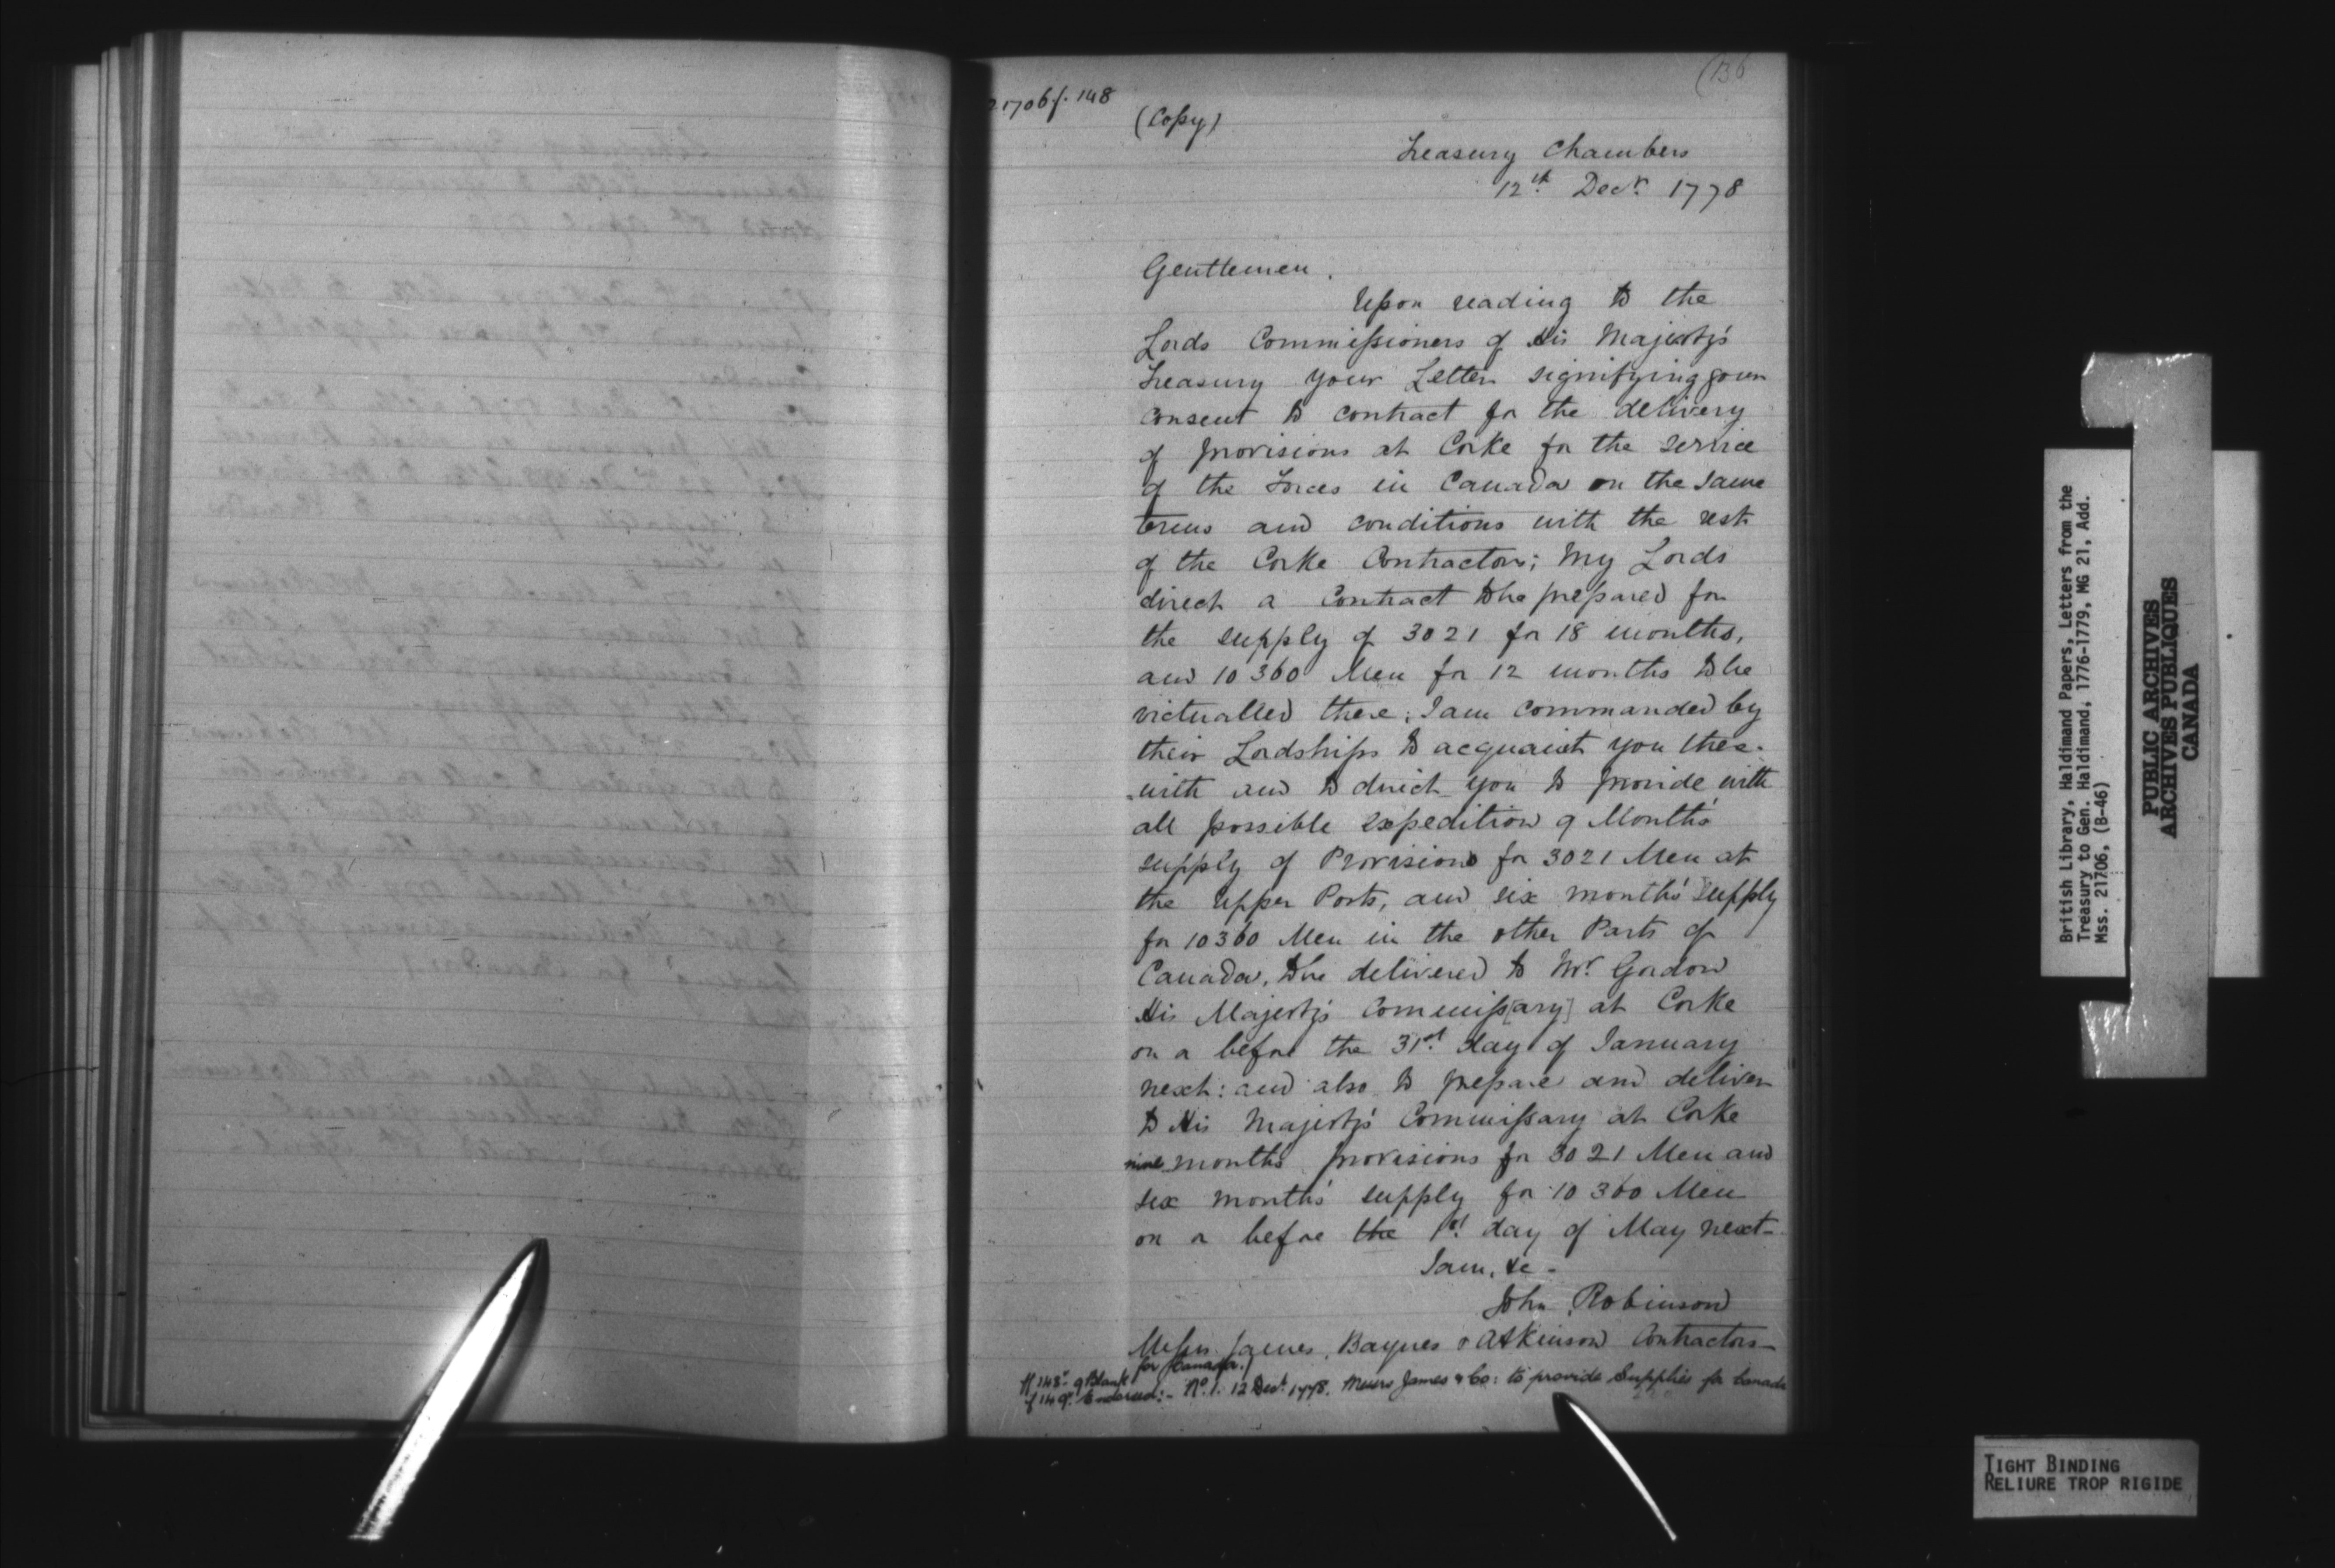 (136
21706 f. 148
(Copy)
Treasury Chambers
12th Decr. 1778
Gentlemen.
Upon reading to the
Lords Commissioners of His Majesty's
Treasury your Letter signifying your
consent to contract for the delivery
of provisions at Corke for the service
of the Forces in Canada on the same
terms and conditions with the rest
of the Corke Contractors; My Lords
direct a Contract to be prepared for
the supply of 3021 for 18 months,
and 10360 Men for 12 months to be
victualled there; I am commanded by
their Lordships to acquaint you there-
-with and to direct you to provide with
all possible expedition 9 Months'
supply of Provisions for 3021 Men at
the Upper Posts, and six months' supply
for 10360 Men in the other Parts of
Canada, to be delivered to Mr. Gordon
His Majesty's Commiss[ary] at Corke
on or before the 31st day of January
next: and also to prepare and deliver
to His Majesty's Commissary at Corke
nine months' provisions for 3021 Men and
six months' supply for 10360 Men
on or before the 1st day of May next-
I am, &c -
John Robinson
Messrs. James, Baynes & Atkinson Contractors
for Canada.)
Blank
Endorsed:- No. 1. 12 Decr. 1778. Messrs James & Co: to provide Supplies for Canada
British Library, Haldimand Papers, Letters from the
Treasury to Gen. Haldimand, 1776-1779, MG 21, Add.
Mss. 21706, (B-46)
PUBLIC ARCHIVES
ARCHIVES PUBLIQUES
CANADA
TIGHT BINDING
RELIURE TROP RIGIDE